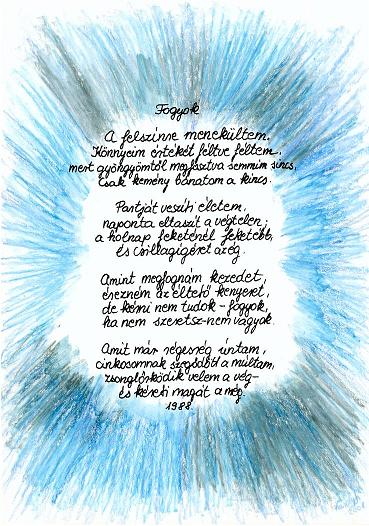 Fogyok
A felszínre menekültem.
Könnyeim értékét féltve féltem,
mert gyöngyömtől megfosztva semmim sincs,
Csak kemény bánatom a kincs.
Partját veszíti életem,
naponta eltaszít a végtelen;
a holnap feketénél feketébb,
és csillagigéret az ég.
Amint megfognám kezedet,
érezném az éltető kenyeret,
de kérni nem tudok - fogyok,
ha nem szeretsz - nem vagyok.
Amit már régesrég úntam,
cinkosomnak szegődött a múltam,
zsonglőrködik velem a vég -
és kéreti magát a még.
1988.